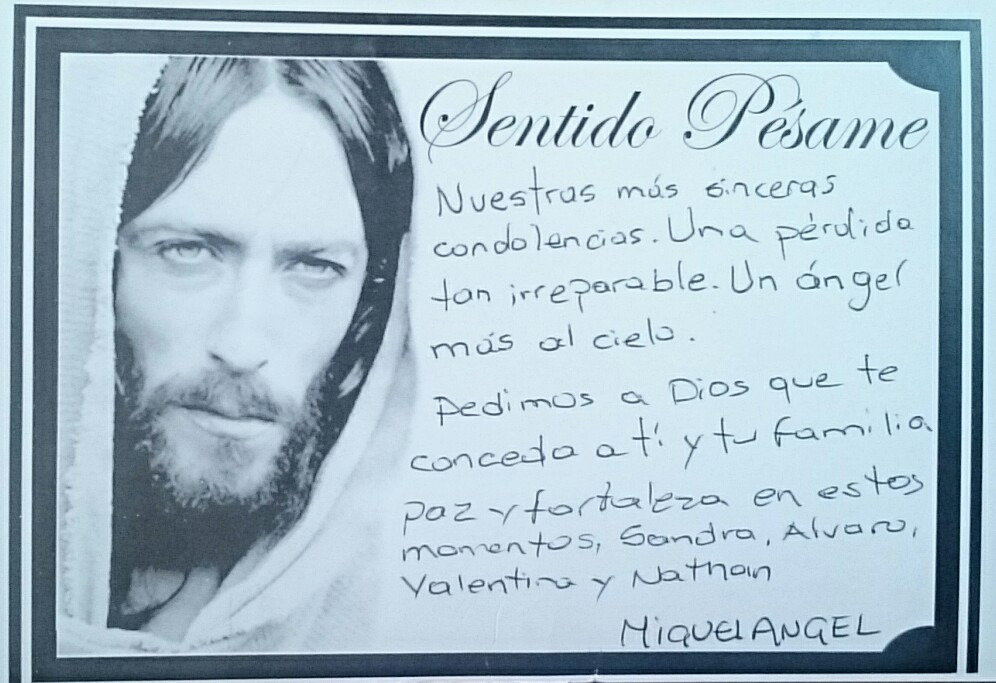 Sentido Pésame
Nuestras más sinceras
condolencias. Una pérdida
tan irreparable. Un ángel
más al cielo.
Pedimos a Dios que te
conceda a tí y tu familia
paz y fortaleza en estos
momentos, Sandra, Alvaro,
Valentina y Nathan
MIQUEL ANGEL